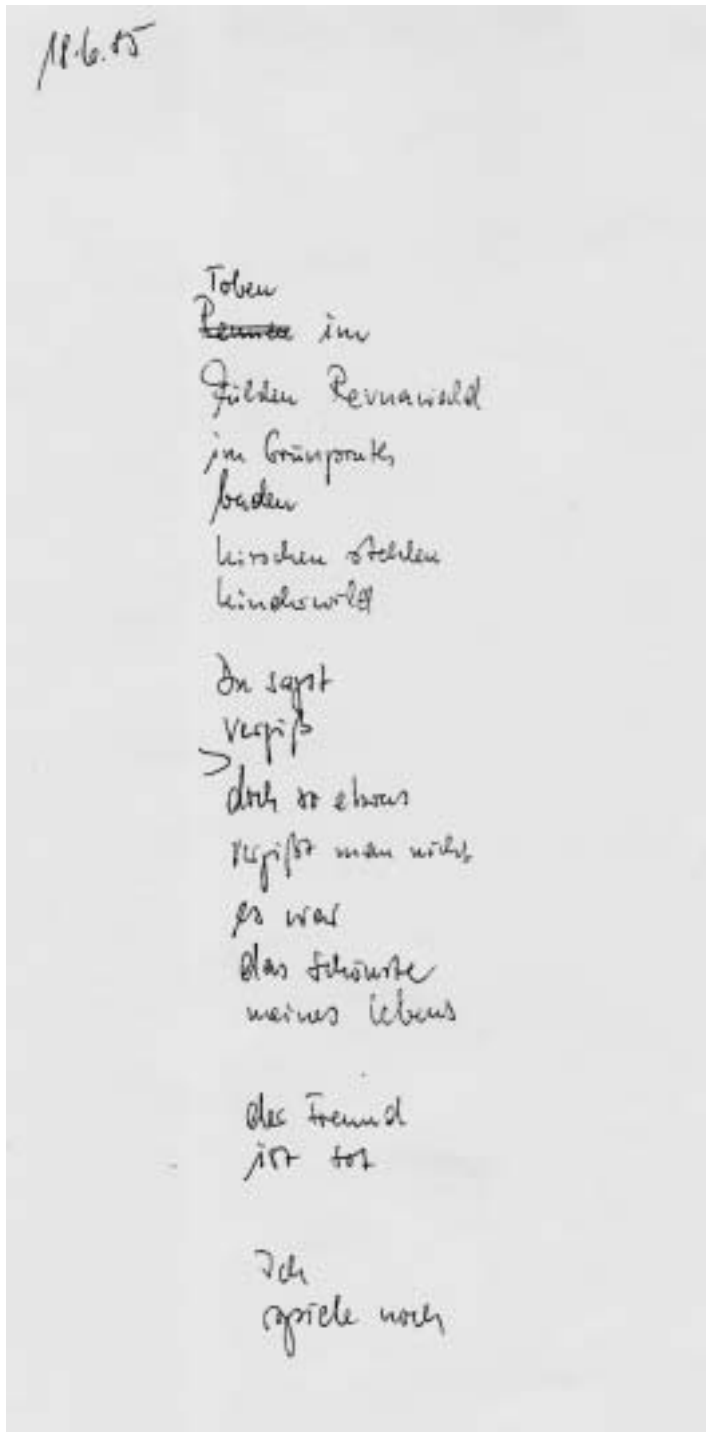 18.6.85
Toben
Rennen im
Gülden Revnawald
im Grünpruth
baden
kirschen stehlen
kinderwild
Du sagst
vergiß
doch so etwas
vergißt man nicht
es war
das Schönste
meines Lebens
der Freund
ist tot
Ich
spiele noch